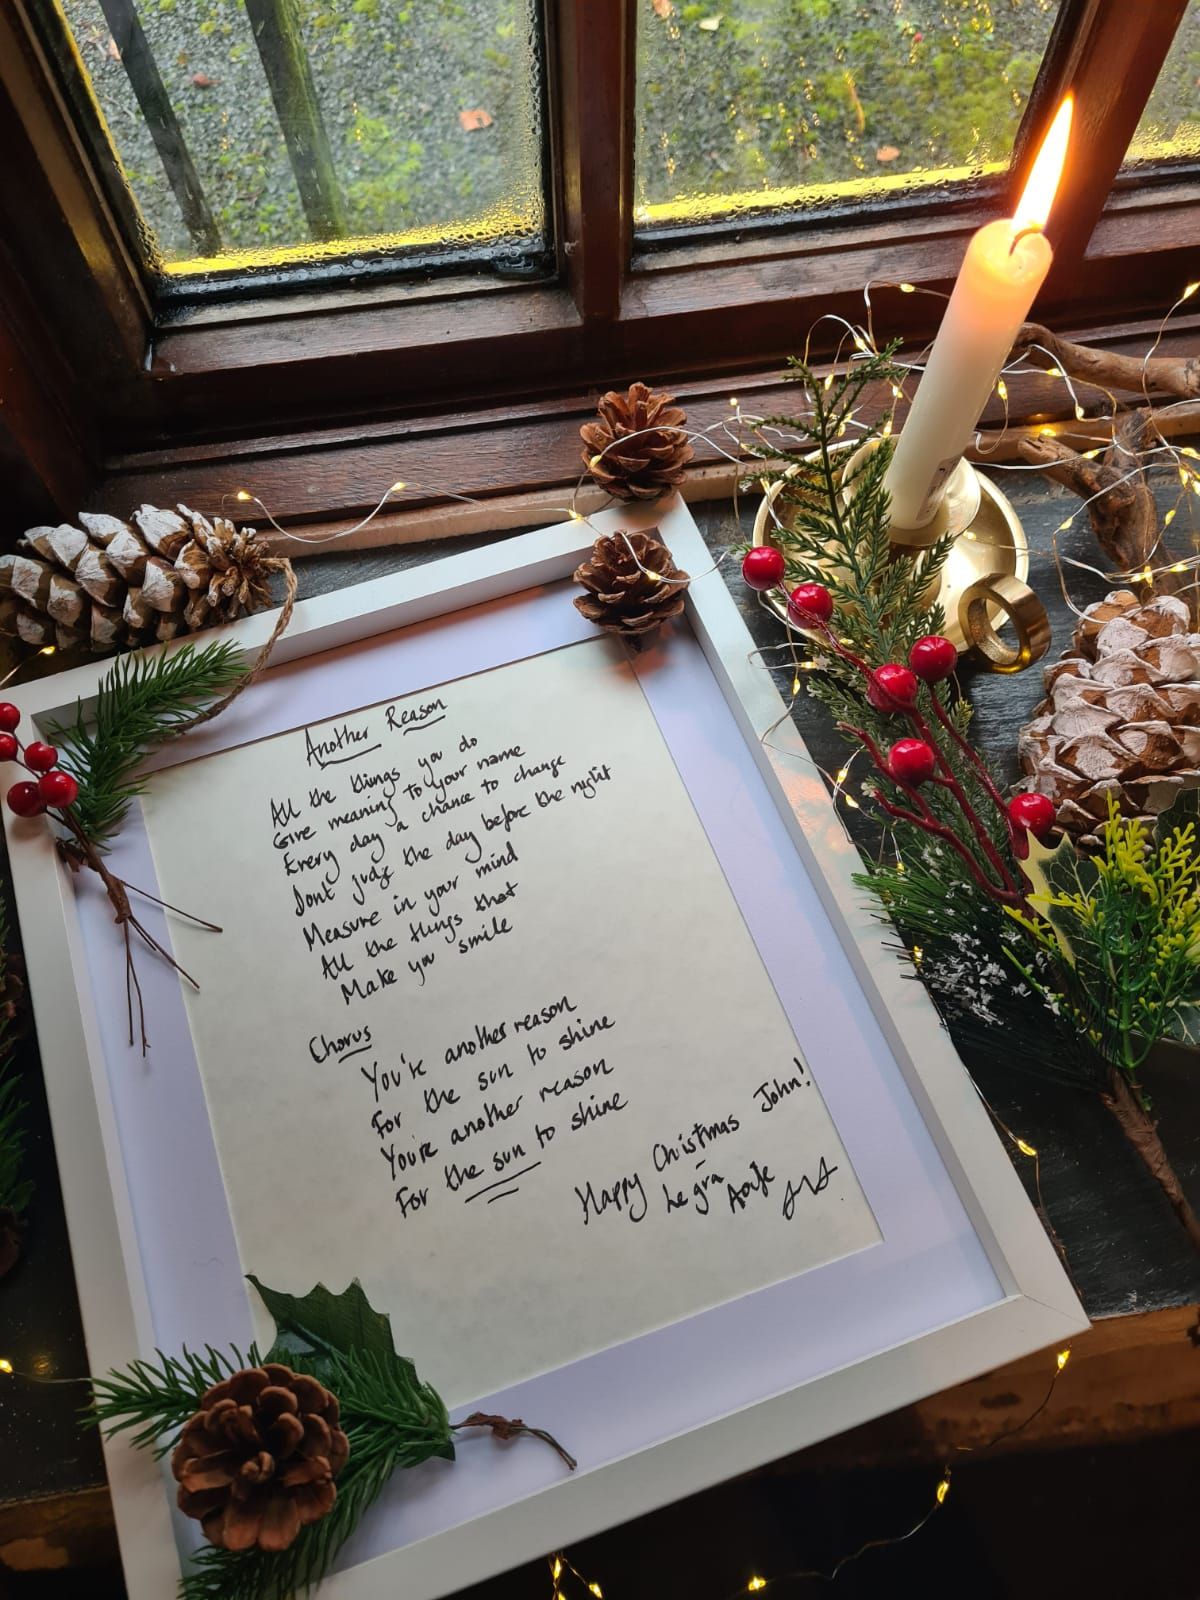 Another Reason
All the things you do
Give meaning to your name
Every day a chance to change
Dont judge the day before the night
Measure in your mind
All the things that
Make you smile
Chorus
You're another reason
For the sun to shine
You're another reason
For the sun to shine
Happy Christmas John!
Le grá
Aoife